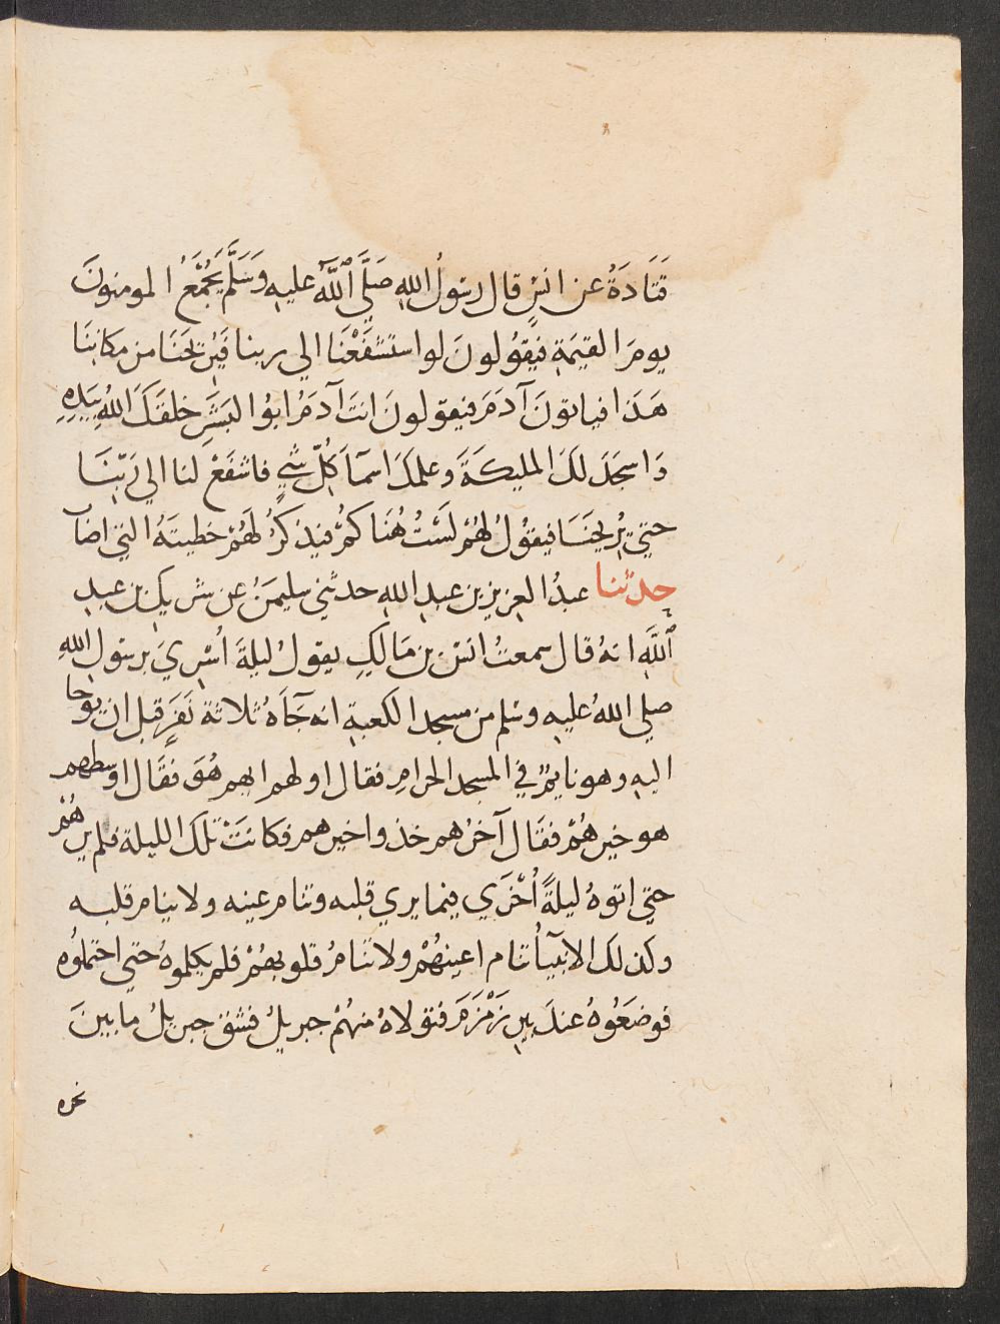 قَتَادَةُ عن انسٍ قال رسُولُ اللهِ صَلَّي ٱللَّهُ عليهِ وَسَلَّمَ يُجْمَعُ المومنونَ
يومَ القيمَةِ فيقُولونَ لو استشفَعْنَا الي ربنا فَيُرِيحَنَا من مكاننَا
هَذَا فياتونَ آدمَ فيقولونَ انتَ آدمُ ابوُا البَشَرِ خلقَكَ اللهُ بِيَدِهِ
وَاسجَدَ لكَ المليكَةَ وعلمكَ اسمآَ كُلِّ شيٍ فاشفَعْ لنا الي رَبِّنَا
حتي يُرِيحَنَا فيقُولُ لهُمْ لَسْتُ هُنَاكمُ فيذكرُ لهَمُ خطيتَهُ التي اصَابَ
حدثنا عبدُ العزيزِ بن عبدِ اللهِ حدثني سليمَنُ عن شريكِ بن عبدِ
ٱللَّهِ انهُ قال سمعتُ انسَ بن مَالكٍ يقولُ ليلةَ اُسْرِيَ برسَولِ اللهِ
صلي اللهُ عليهِ وسَلم من مسجدِ الكعبةِ انه جَآَهُ ثلاثة نَفَرٍ قبل ان يوحا
اليهِ وهو نايمٌ في المسجد الحرامِ فقال اولهم ايهم هُوَ فقَال اوسطهم
هو خيرهُمْ فقَال آخرُهم خذوا خيرهم فكانتَْ تلك الليلة فلم يرهُمْ
حتي اتوهُ ليلةً اُخْرَي فيما يري قلبه وتنام عينه ولا ينام قلبه
وكذلك الانبيآُ تنام اعينهُمْ ولا تنَامُ قلوبهُمْ فلم يكلموهُ حتي احتملوُه
فوضعَُوهُ عندَ بيرِ زَمْزَمَ فتولاهُ منهُمْ جبريلُ فشق جبريلُ ما بينَ
نحره